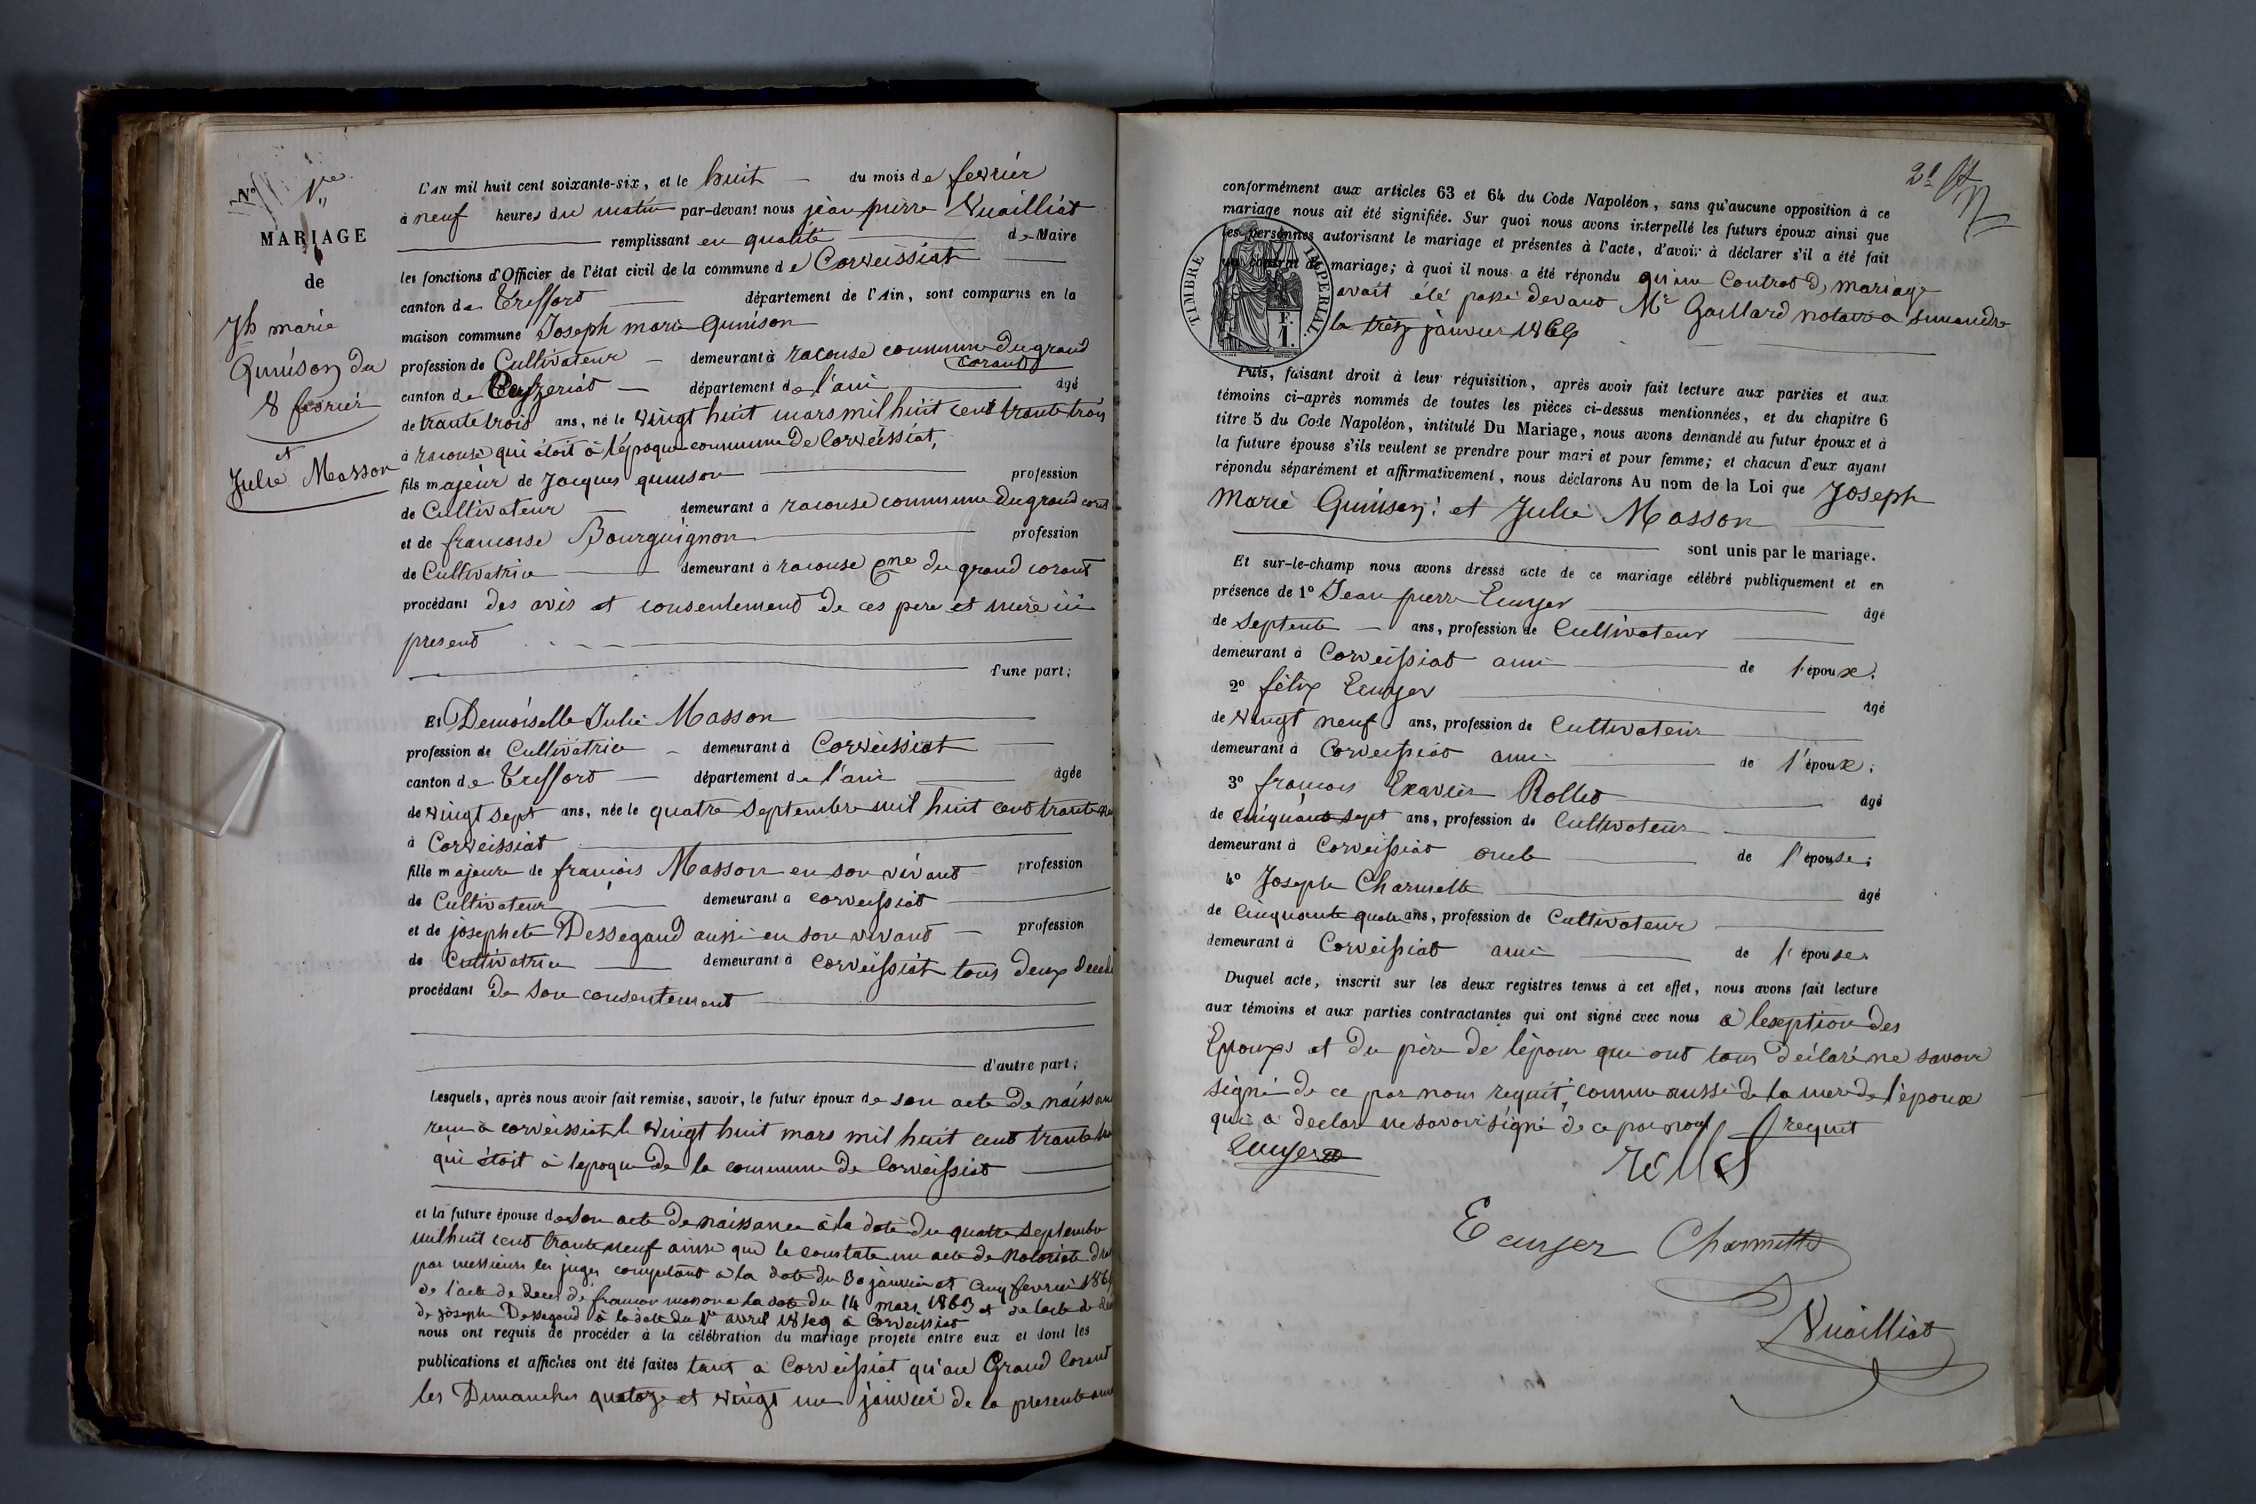 N° 1re
MARIAGE
de
Jh marie
Quinson du
8 fevrier
et
Julie Masson
L'AN mil huit cent soixante-six, et le huit du mois de fevrier
à neuf heures du matin par-devant nous jean pierre Nuailliat
remplissant en qualité de Maire
les fonctions d'Officier de l'état civil de la commune de Corveissiat
canton de Treffort département de l'Ain, sont comparus en la
maison commune Joseph marie Quinson
profession de Cultivateur demeurant à racouse commune du grand
corant
canton de Ceyzeriat département de l'ain âgé
de trante trois ans, né le vingt huit mars mil huit cent trante trois
à racouse qui étoit à l'époque commune de Corveissiat,
fils majeur de Jacques quinson profession
de Cultivateur demeurant à racouse commune du grand corant
et de francoise Bourguignon profession
de Cultivatrice demeurant à racouse Cne du grand corant
procédant des avis et consentement de ces pere et mere ici
present
d'une part;
Et Demoiselle Julie Masson
profession de Cultivatrice demeurant à Corveissiat
canton de Treffort département de l'ain âgée
de vingt sept ans, née le quatre septembre mil huit cent trante
à Corveissiat
fille majeure de francois Masson en son vivant profession
de Cultivateur demeurant à corveissiat
et de josephete Dessegaud aussi en son vivant profession
de Cultivatrice demeurant à corveissiat tous deux
procédant de son consentement
d'autre part;
Lesquels, après nous avoir fait remise, savoir, le futur époux de son acte de
recu à corveissiat le vingt huit mars mil huit cent trante
qui étoit à lepoque de la commune de Corveissiat
et la future épouse de son acte de naissance à la date du quatre septembre
mil huit cent trante neuf ainsi que le constate un acte de Notoriété
par messieurs les juges competant a la date du 30 janvier et cinq fevrier
de l'acte de deces de francois masson a la date du 14 mars 1863 et de lacte de
de joseph Dessegaud à la date du 1er avril à Corveissiat
nous ont requis de procéder à la célébration du mariage projeté entre eux et dont les
publications et affiches ont été faites tant a Corveissiat qu'au Grand Corant
les Dimanches quatoze et vingt un janvier de la presente
2e
conformément aux articles 63 et 64 du Code Napoléon, sans qu'aucune opposition à ce
mariage nous ait été signifiée. Sur quoi nous avons interpellé les futurs époux ainsi que
les personnes autorisant le mariage et présentes à l'acte, d'avoir à déclarer s'il a été fait
un contrat de mariage; à quoi il nous a été répondu qu'un Contrat de mariage
avait été passé devant Mr Gaillard notaire a simandre
le treize janvier 1866
TIMBRE IMPERIAL.
F.
1.
Puis, faisant droit à leur réquisition, après avoir fait lecture aux parties et aux
témoins ci-après nommés de toutes les pièces ci-dessus mentionnées, et du chapitre 6
titre 5 du Code Napoléon, intitulé Du Mariage, nous avons demandé au futur époux et à
la future épouse s'ils veulent se prendre pour mari et pour femme; et chacun d'eux ayant
répondu séparément et affirmativement, nous déclarons Au nom de la Loi que Joseph
Marie Quinson: et Julie Masson
sont unis par le mariage.
Et sur-le-champ nous avons dressé acte de ce mariage célébré publiquement et en
présence de 1° Jean pierre Eunjer âgé
de septente ans, profession de Cultivateur
demeurant à Corveissiat ami de l'époux.
2° félix Eunjer âgé
de vingt neuf ans, profession de Cultivateur
demeurant à Corveissiat ami de l'époux;
3° francois Exavier Rollet âgé
de cinquante sept ans, profession de Cultivateur
demeurant à Corveissiat oncle de l'épouse;
4° Joseph Charmette âgé
de cinquante quatre ans, profession de Cultivateur
demeurant à Corveissiat ami de l'épouse.
Duquel acte, inscrit sur les deux registres tenus à cet effet, nous avons fait lecture
aux témoins et aux parties contractantes qui ont signé avec nous a lexeption des
Epouxs et du père de lépoux qui ont tous déclaré ne savoir
signé de ce par nous requit, comme aussi de la mere de l'époux
qui a declar ne savoir signé de ce par nous requit
Eunjer
rollet
Eunjer Charmette
Nuailliat